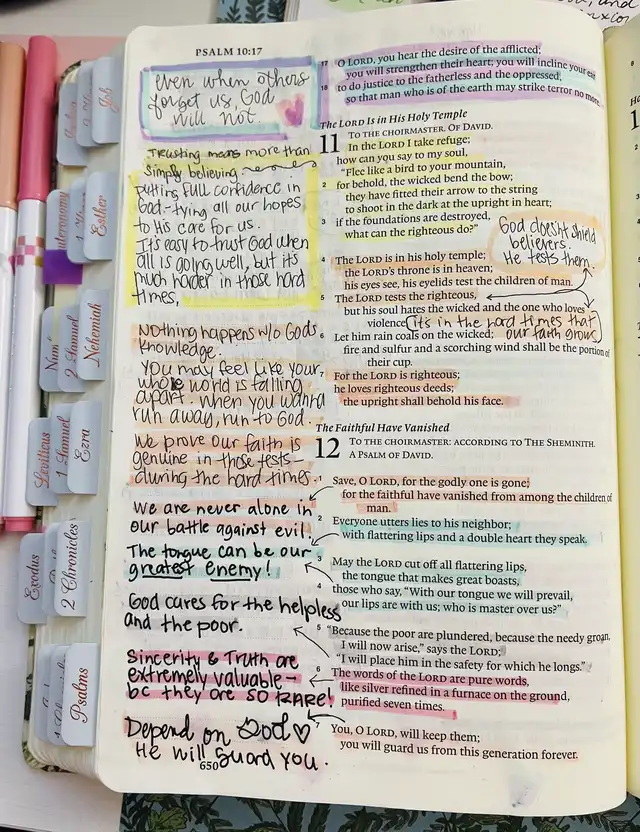 PSALM 10:17
even when others
forget us, God
will not.
Trusting means more than
simply believing
putting FULL confidence in
God - tying all our hopes
to His care for us.
It's easy to trust God when
all is going well, but it's
much harder in those hard
times.
Nothing happens w/o Gods
knowledge.
You may feel like your
whole world is falling
apart. When you wanna
run away, run to God.
We prove our faith is
genuine in those tests -
during the hard times.
We are never alone in
our battle against evil.
The tongue can be our
greatest enemy!
God cares for the helpless
and the poor.
Sincerity & Truth are
extremely valuable -
bc they are SO RARE!
Depend on God
He will guard you.
650
17 O LORD, you hear the desire of the afflicted;
you will strengthen their heart; you will incline your ear
18 to do justice to the fatherless and the oppressed,
so that man who is of the earth may strike terror no more.
The LORD Is in His Holy Temple
11 TO THE CHOIRMASTER. OF DAVID.
In the LORD I take refuge;
how can you say to my soul,
"Flee like a bird to your mountain,
2 for behold, the wicked bend the bow;
they have fitted their arrow to the string
to shoot in the dark at the upright in heart;
3 if the foundations are destroyed,
what can the righteous do?"
God doesn't shield
believers.
He tests them.
4 The LORD is in his holy temple;
the LORD's throne is in heaven;
his eyes see, his eyelids test the children of man.
5 The LORD tests the righteous,
but his soul hates the wicked and the one who loves
violence.
it's in the hard times that
our faith grows
6 Let him rain coals on the wicked;
fire and sulfur and a scorching wind shall be the portion of
their cup.
7 For the LORD is righteous;
he loves righteous deeds;
the upright shall behold his face.
The Faithful Have Vanished
12 TO THE CHOIRMASTER: ACCORDING TO THE SHEMINITH.
A PSALM OF DAVID.
1 Save, O LORD, for the godly one is gone;
for the faithful have vanished from among the children of
man.
2 Everyone utters lies to his neighbor;
with flattering lips and a double heart they speak.
3 May the LORD cut off all flattering lips,
the tongue that makes great boasts,
4 those who say, "With our tongue we will prevail,
our lips are with us; who is master over us?"
5 "Because the poor are plundered, because the needy groan,
I will now arise," says the LORD;
"I will place him in the safety for which he longs."
6 The words of the LORD are pure words,
like silver refined in a furnace on the ground,
purified seven times.
7 You, O LORD, will keep them;
you will guard us from this generation forever.
Job
Esther
Nehemiah
2 Samuel
Ezra
1 Samuel
Leviticus
2 Chronicles
Exodus
Psalms